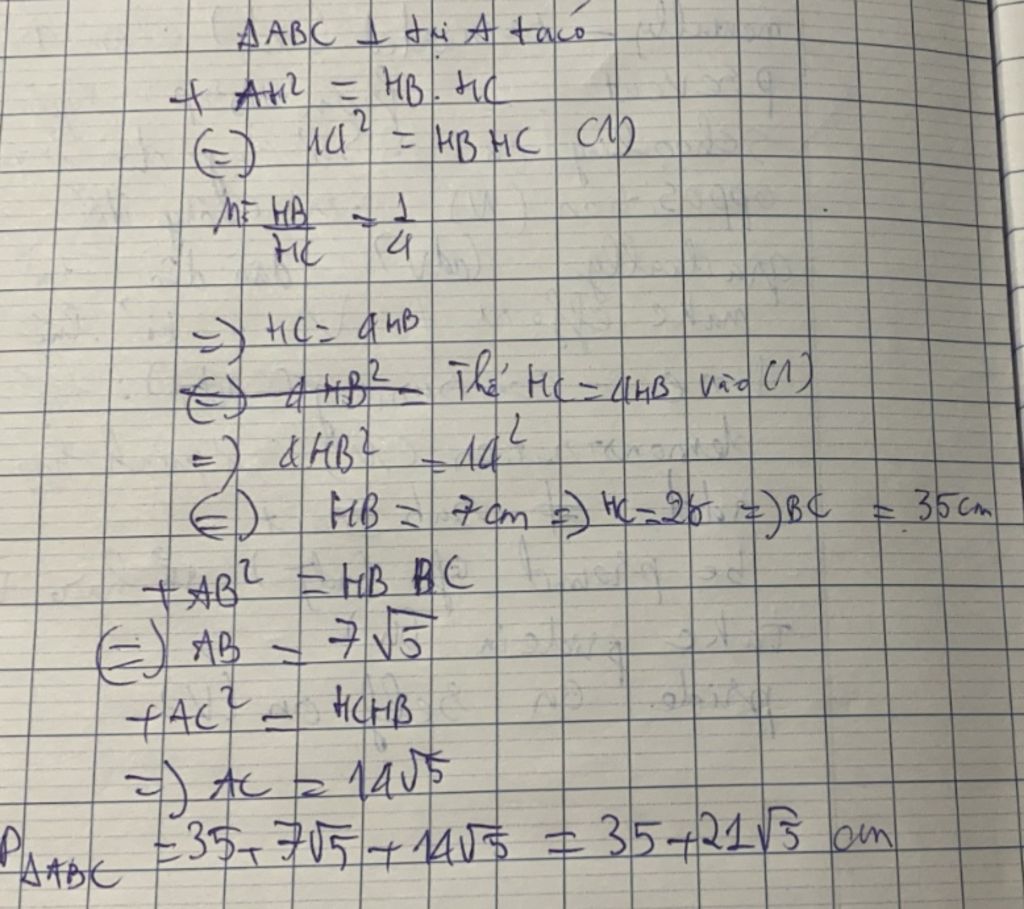 ΔABC ⊥ tại A ta có
+ AH² = HB. HC
(=) 14² = HB HC (1)
M= HB/HC = 1/4
=) HC = 4HB
(=) 4HB² = Thế HC = 4HB vào (1)
=) 4HB² = 14²
(=) HB = 7cm =) HC = 28 =) BC = 35cm
+ AB² = HB BC
(=) AB = 7√5
+ AC² = HCHB
=) AC = 14√5
PΔABC = 35+ 7√5 + 14√5 = 35+21√5 cm